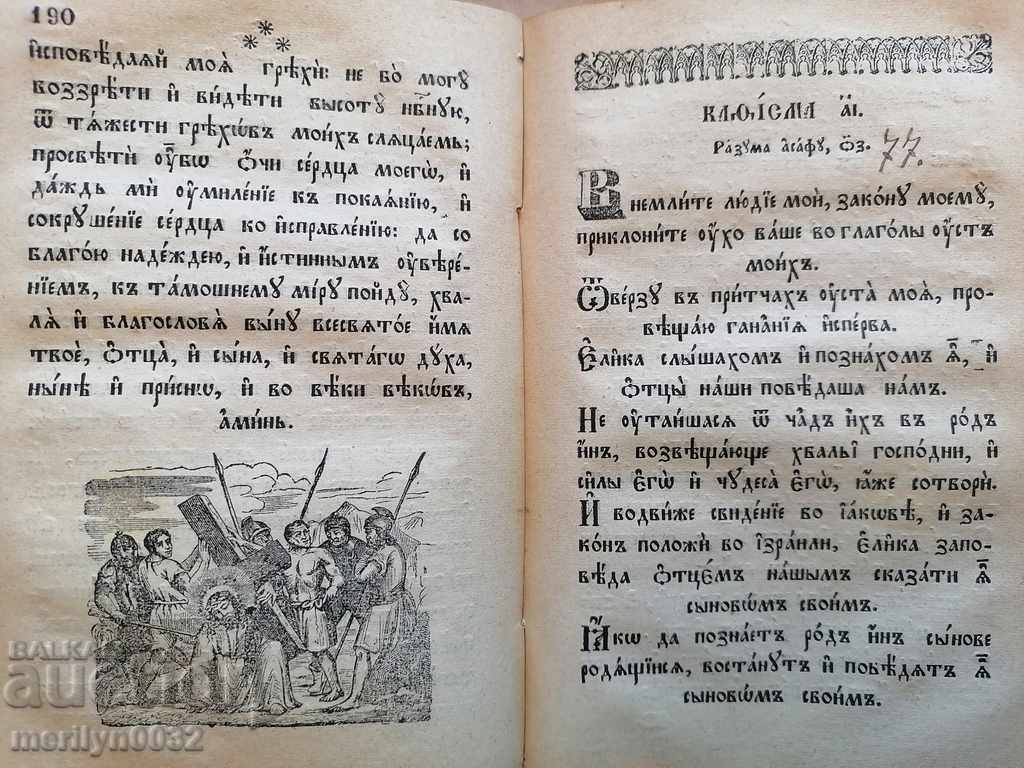 190
***
и҆сповѣ́даѧй моѧ̑ грѣхѝ: не бо̀ могꙋ̀
воззрѣ́ти и҆ ви́дѣти высотꙋ̀ нб҃нꙋю,
ѿ тѧ́жести грѣхѡ́въ мои́хъ слѧца́емь;
просвѣтѝ ᲂу҆̀бо ѻ҆́чи се́рдца моегѡ̀, и҆
да́ждь мѝ ᲂу҆миле́нїе къ покаѧ́нїю, и҆
сокрꙋше́нїе се́рдца ко и҆справле́нїю: да со
благо́ю наде́ждею, и҆ и҆́стиннымъ ᲂу҆вѣре́-
нїемъ, къ та́мошнемꙋ мі́рꙋ пойдꙋ̀, хва-
лѧ̀ и҆ благословѧ̀ вы́нꙋ всесвѧто́е и҆́мѧ
твоѐ, ѻ҆тца̀, и҆ сы́на, и҆ свѧта́гѡ дꙋ́ха,
ны́нѣ и҆ при́снѡ, и҆ во вѣ́ки вѣкѡ́въ,
а҆ми́нь.
КАѲІ́СМА а҃і.
Ра́зꙋма а҆са́фꙋ, ѻ҃з. 77.
Внемли́те лю́дїе моѝ, зако́нꙋ моемꙋ̀,
приклони́те ᲂу҆́хо ва́ше во глаго́лы ᲂу҆́стъ
мои́хъ.
Ѿве́рзꙋ въ при́тчахъ ᲂу҆ста̀ моѧ̑, про-
вѣща́ю гана̑нїѧ и҆спе́рва.
Е҆ли̑ка слы́шахомъ и҆ позна́хомъ ѧ҆̀, и҆
ѻ҆тцы̀ на́ши повѣ́даша на́мъ.
Не ᲂу҆таи́шасѧ ѿ ча̑дъ и҆́хъ въ ро́дъ
и҆́нъ, возвѣща́юще хвалы̑ госпо́дни, и҆
си̑лы є҆гѡ̀ и҆ чꙋдеса̀ є҆гѡ̀, ꙗ҆̀же сотворѝ.
И҆ водви́же свиде́нїе во і҆а́кѡвѣ, и҆ за-
ко́нъ положѝ во і҆зра́или, є҆ли̑ка запо-
вѣ́да ѻ҆тцє́мъ на́шымъ сказа́ти ѧ҆̀
сыновѡ́мъ свои̑мъ.
Ꙗ҆́кѡ да позна́етъ ро́дъ и҆́нъ сы́нове
родѧ́щїисѧ, воста́нꙋтъ и҆ повѣ́дѧтъ ѧ҆̀
сыновѡ́мъ свои̑мъ.
BALKAN
auction
merilyn0032